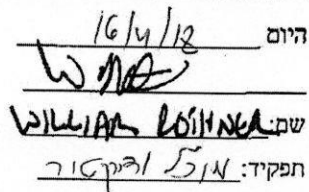 היום 16/4/18
שם: WILLIAM
תפקיד: מנכ"ל ודירקטור